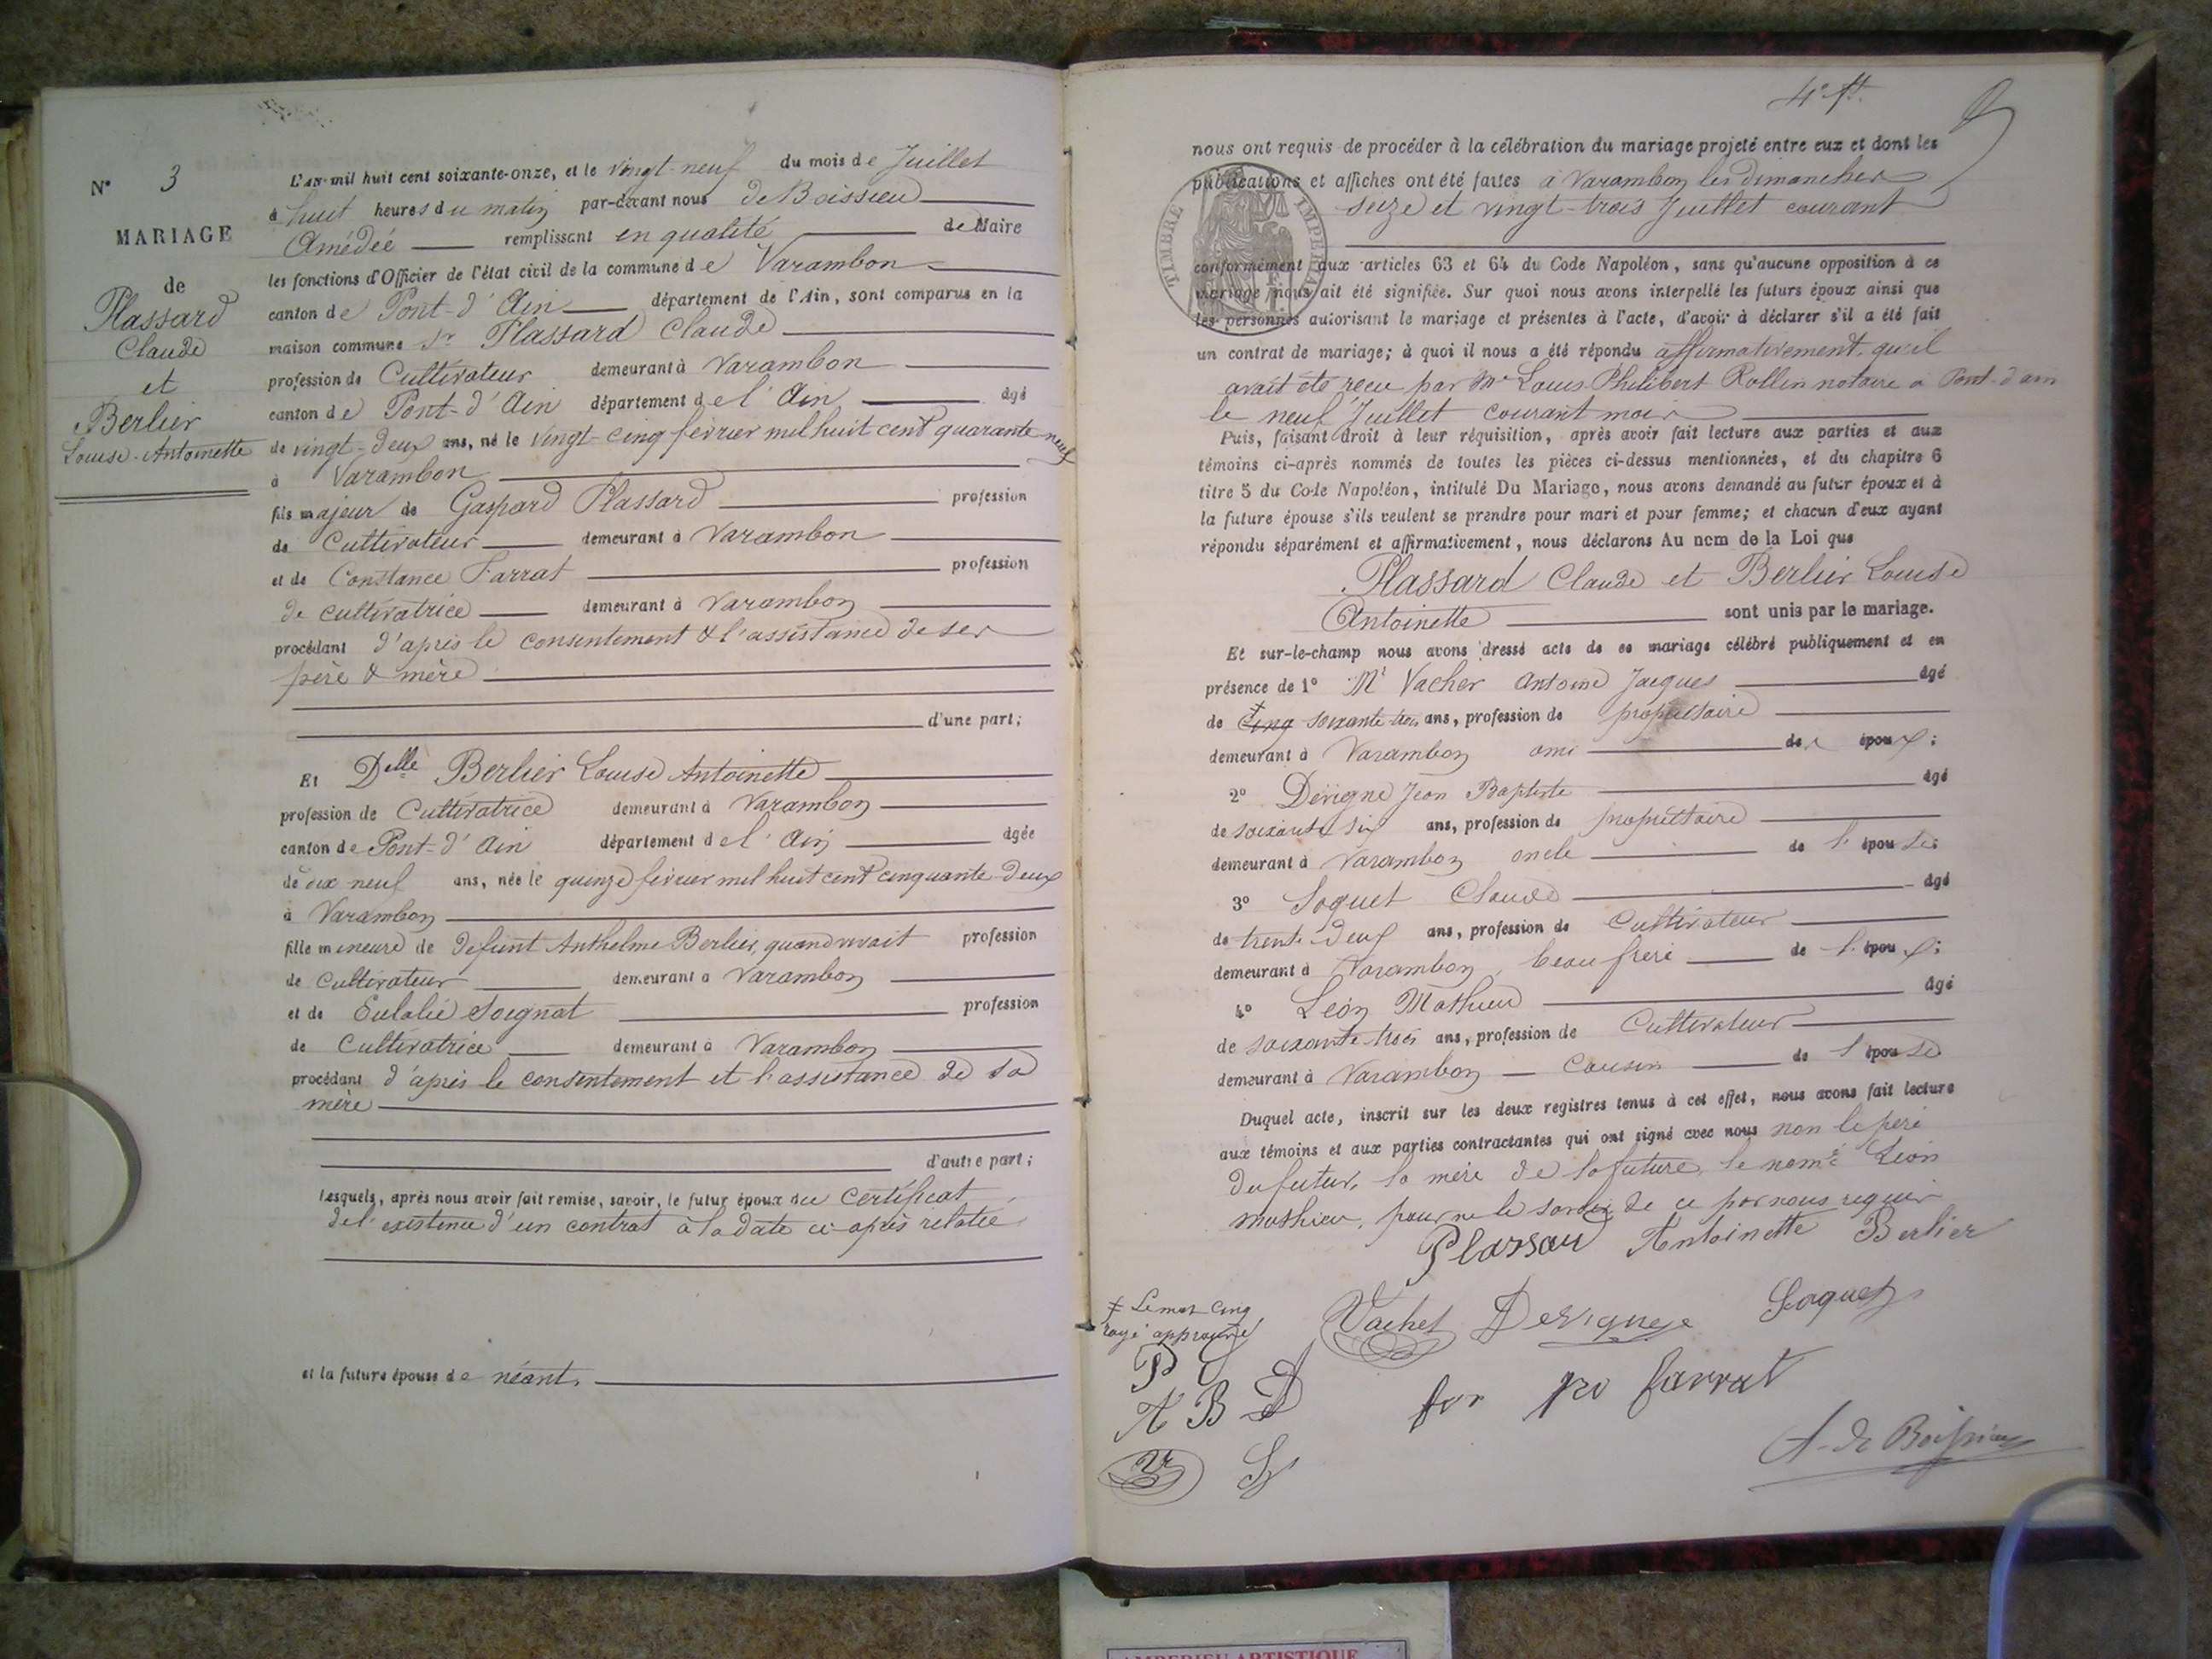 N° 3
MARIAGE
de
Plassard
Claude
et
Berlier
Louise-Antoinette
L'an mil huit cent soixante-onze, et le vingt-neuf du mois de Juillet
à huit heures du matin par-devant nous de Boissieu
Amédée remplissant en qualité de Maire
les fonctions d'Officier de l'état civil de la commune de Varambon
canton de Pont-d'Ain département de l'Ain, sont comparus en la
maison commune Sr Plassard Claude
profession de Cultivateur demeurant à Varambon
canton de Pont-d'Ain département de l'Ain âgé
de vingt-deux ans, né le vingt-cinq février mil huit cent quarante neuf
à Varambon
fils majeur de Gaspard Plassard profession
de Cultivateur demeurant à Varambon
et de Constance Farrat profession
de cultivatrice demeurant à Varambon
procédant d'après le consentement & l'assistance de ses
père & mère
d'une part;
Et Delle Berlier Louise Antoinette
profession de Cultivatrice demeurant à Varambon
canton de Pont-d'Ain département de l'Ain âgée
de dix neuf ans, née le quinze février mil huit cent cinquante-deux
à Varambon
fille mineure de defunt Anthelme Berlier, quand vivait profession
de cultivateur demeurant à Varambon
et de Eulalie Soignat profession
de Cultivatrice demeurant à Varambon
procédant d'après le consentement et l'assistance de sa
mère
d'autre part;
lesquels, après nous avoir fait remise, savoir, le futur époux du certificat
de l'existence d'un contrat à la date ci-après relatée
et la future épouse de néant.
nous ont requis de procéder à la célébration du mariage projeté entre eux et dont les
publications et affiches ont été faites à Varambon les dimanches
seize et vingt-trois Juillet courant
TIMBRE IMPERIAL
conformément aux articles 63 et 64 du Code Napoléon, sans qu'aucune opposition à ce
mariage nous ait été signifiée. Sur quoi nous avons interpellé les futurs époux ainsi que
les personnes autorisant le mariage et présentes à l'acte, d'avoir à déclarer s'il a été fait
un contrat de mariage; à quoi il nous a été répondu affirmativement, qu'il
avait été reçu par Me Louis Philibert Rollin notaire à Pont-d'ain
le neuf Juillet courant mois
Puis, faisant droit à leur réquisition, après avoir fait lecture aux parties et aux
témoins ci-après nommés de toutes les pièces ci-dessus mentionnées, et du chapitre 6
titre 5 du Code Napoléon, intitulé Du Mariage, nous avons demandé au futur époux et à
la future épouse s'ils veulent se prendre pour mari et pour femme; et chacun d'eux ayant
répondu séparément et affirmativement, nous déclarons Au nom de la Loi que
Plassard Claude et Berlier Louise
Antoinette sont unis par le mariage.
Et sur-le-champ nous avons dressé acte de ce mariage célébré publiquement et en
présence de 1° Mr Vacher Antoine Jacques âgé
de cinq soixante trois ans, profession de propriétaire
demeurant à Varambon ami des époux;
2° Devigne Jean Baptiste âgé
de soixante six ans, profession de propriétaire
demeurant à Varambon oncle de l'épouse;
3° Soquet Claude âgé
de trente-deux ans, profession de Cultivateur
demeurant à Varambon, beau frère de l'époux;
4° Léon Mathieu âgé
de soixante-trois ans, profession de Cultivateur
demeurant à Varambon cousin de l'épouse
Duquel acte, inscrit sur les deux registres tenus à cet effet, nous avons fait lecture
aux témoins et aux parties contractantes qui ont signé avec nous non le père
du futur, la mère de la future, le nommé Léon
mathieu, pour ne le savoir de ce par nous requis
Plassard Antoinette Berlier
Vacher Devigne Soquet
Le mot cinq
rayé approuvé
P C
A B D
farrat
A. de Boissieu